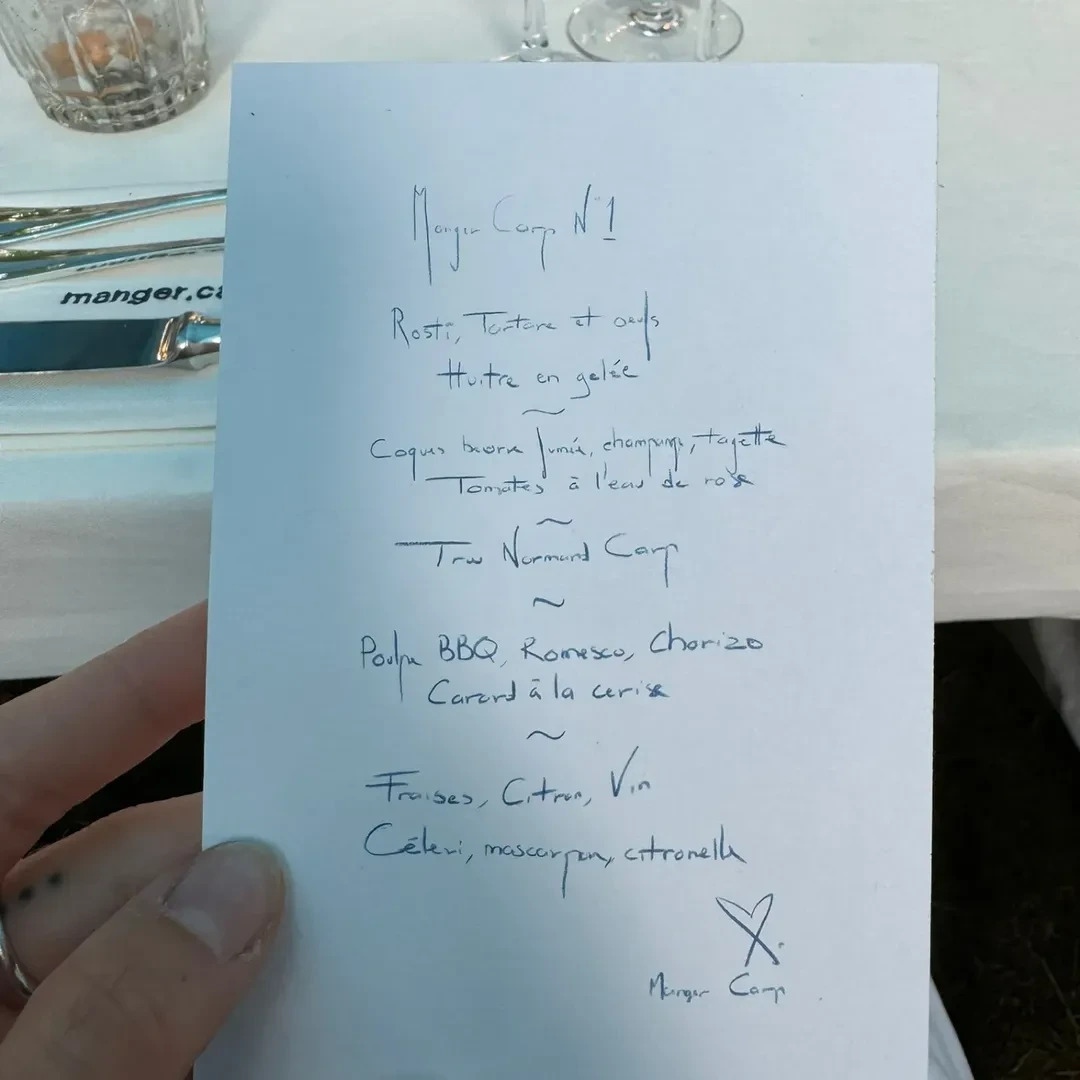 manger.ca
Manger Camp N°1
Rosti, Tartare et oeufs
Huitre en gelée
~
Coques beurre fumée, champignon, tagette
Tomates à l'eau de rose
~
Trou Normand Camp
~
Poulpe BBQ, Romesco, Chorizo
Canard à la cerise
~
Fraises, Citron, Vin
Céleri, mascarpone, citronelle
Manger Camp